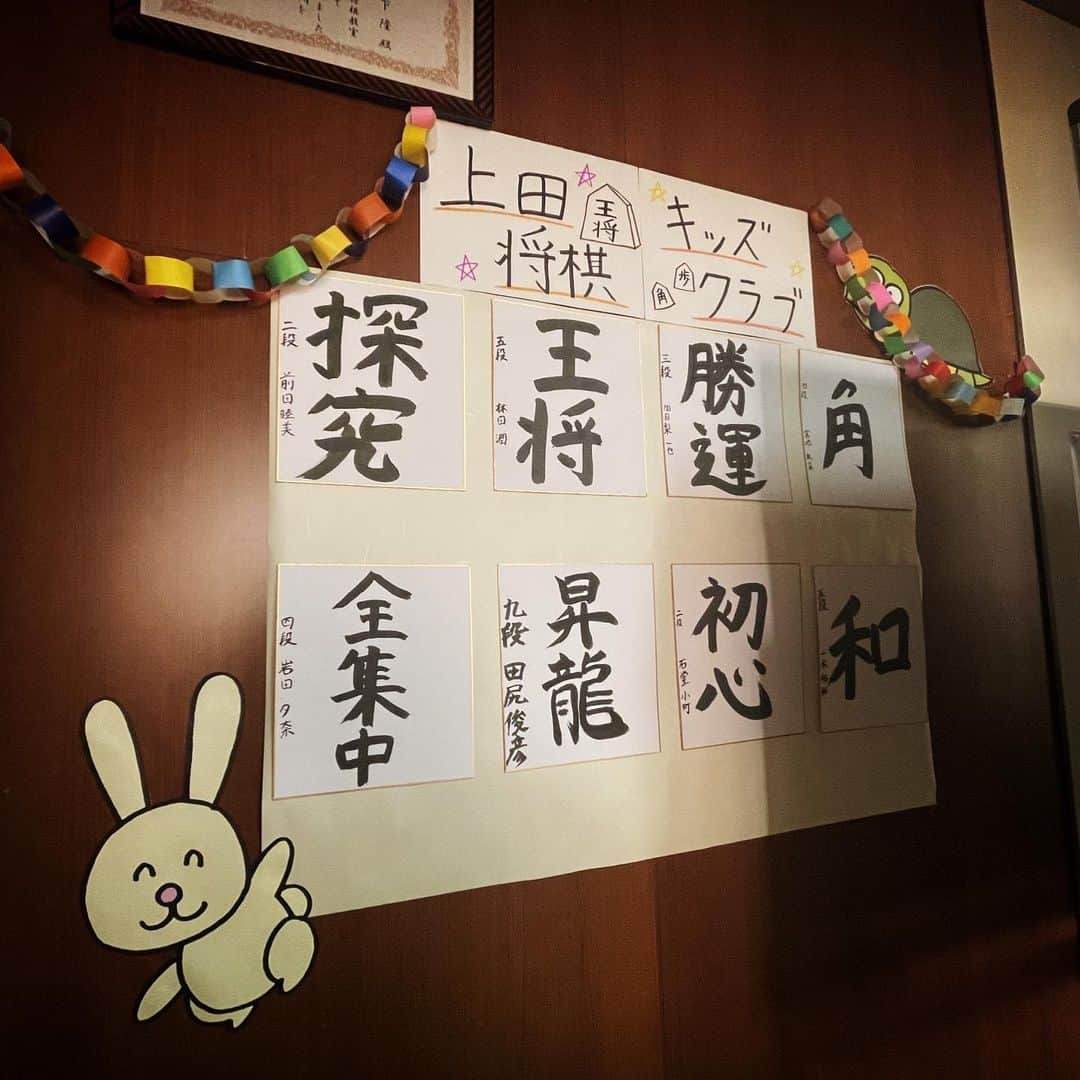 上田
将棋
王将
キッズ
クラブ
歩
角
探究
二段 前田睦美
王将
五段 林田 潤
勝運
三段
角
四段
全集中
四段 岩田 夕奈
昇龍
九段 田尻俊彦
初心
二段 石堂小町
和
五段